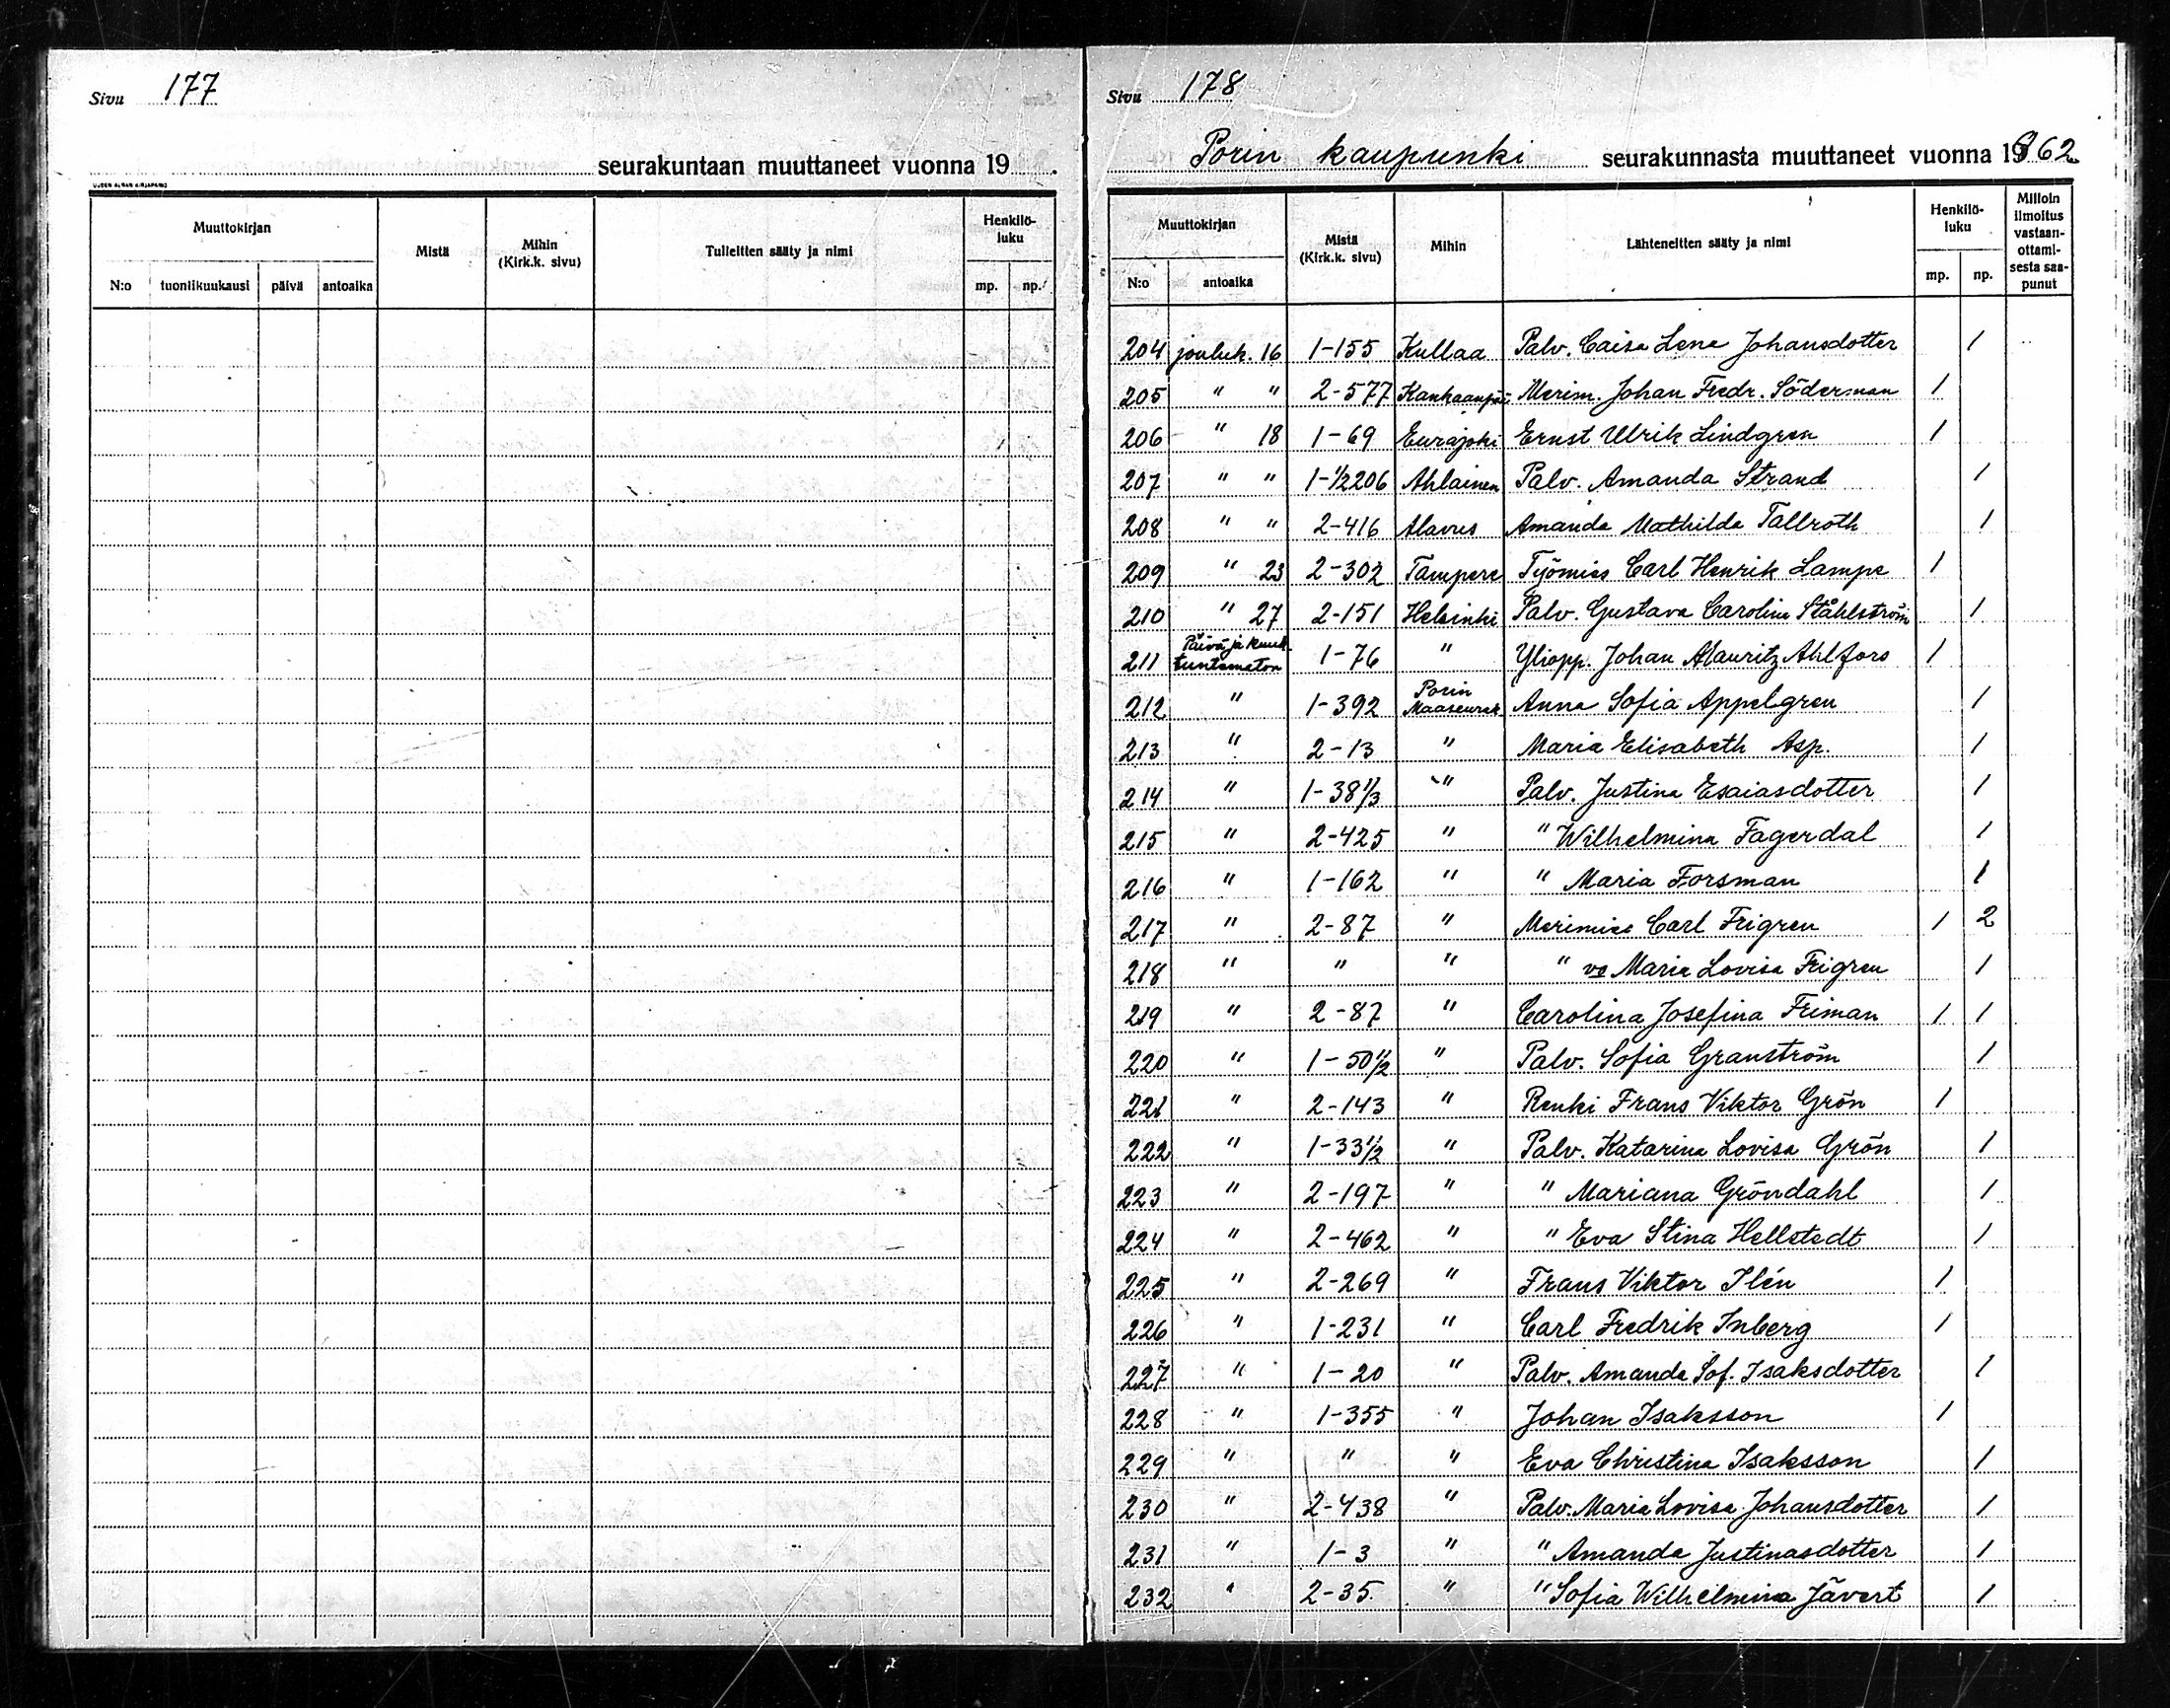 Sivu 177
seurakuntaan muuttaneet vuonna 19 .
Muuttokirjan Mistä Mihin (Kirk.k. sivu) Tulleitten sääty ja nimi Henkilö-luku
N:o tuontikuukausi päivä antoaika mp. np.
Sivu 178
Porin kaupunki seurakunnasta muuttaneet vuonna 1862.
Muuttokirjan Mistä (Kirk.k. sivu) Mihin Lähteneitten sääty ja nimi Henkilö-luku Milloin ilmoitus vastaan-ottami-sesta saa-punut
N:o antoaika mp. np.
204 jouluk. 16 1-155 Kullaa Palv. Caisa Lena Johansdotter 1
205 " " 2-577 Kankaanpää Merim. Johan Fredr. Söderman 1
206 " 18 1-69 Eurajoki Ernst Ulrik Lindgren 1
207 " " 1-1/2206 Ahlainen Palv. Amanda Strand 1
208 " " 2-416 Alavus Amanda Mathilda Tallroth 1
209 " 23 2-302 Tampere Työmies Carl Henrik Lampe 1
210 " 27 2-151 Helsinki Palv. Gustava Carolina Ståhlström 1
211 Päivä ja kuuk. tuntematon 1-76 " Yliopp. Johan Mauritz Ahlfors 1
212 " 1-392 Porin Maaseurak. Anna Sofia Appelgren 1
213 " 2-13 " Maria Elisabeth Asp. 1
214 " 1-38 1/3 " Palv. Justina Esaiasdotter 1
215 " 2-425 " " Wilhelmina Fagerdal 1
216 " 1-162 " " Maria Forsman 1
217 " 2-87 " Merimies Carl Frigren 1 2
218 " " " " vo Maria Lovisa Frigren 1
219 " 2-87 " Carolina Josefina Friman 1 1
220 " 1-50 1/2 " Palv. Sofia Granström 1
221 " 2-143 " Renki Frans Viktor Grön 1
222 " 1-33 1/2 " Palv. Katarina Lovisa Grön 1
223 " 2-197 " " Mariana Gröndahl 1
224 " 2-462 " " Eva Stina Hellstedt 1
225 " 2-269 " Frans Viktor Ilén 1
226 " 1-231 " Carl Fredrik Inberg 1
227 " 1-20 " Palv. Amanda Sof. Isaksdotter 1
228 " 1-355 " Johan Isaksson 1
229 " " " Eva Christina Isaksson 1
230 " 2-438 " Palv. Maria Lovisa Johansdotter 1
231 " 1-3 " " Amanda Justinasdotter 1
232 " 2-35 " " Sofia Wilhelmina Jävert 1